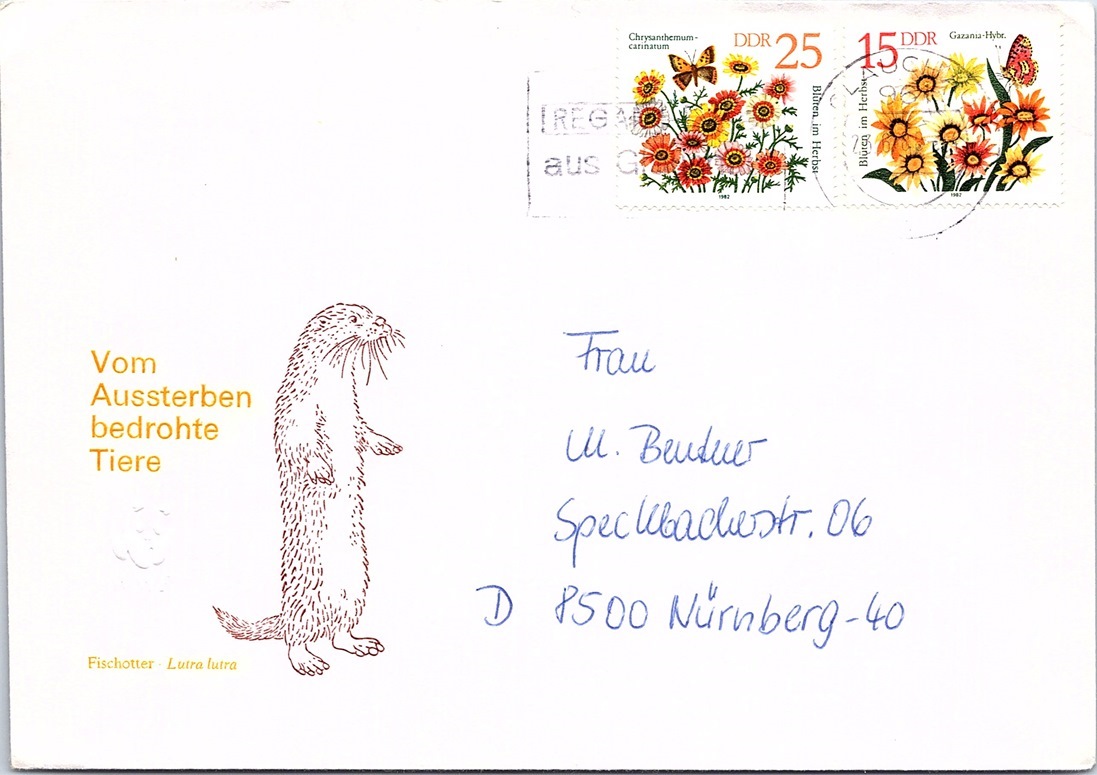 Chrysanthemum-
carinatum
DDR 25
Blüten im Herbst
1982
15 DDR
Gazania-Hybr.
Blüten im Herbst
1982
aus
Vom
Aussterben
bedrohte
Tiere
Fischotter · Lutra lutra
Frau
M. Bentner
Specklbacherstr. 06
D 8500 Nürnberg-40